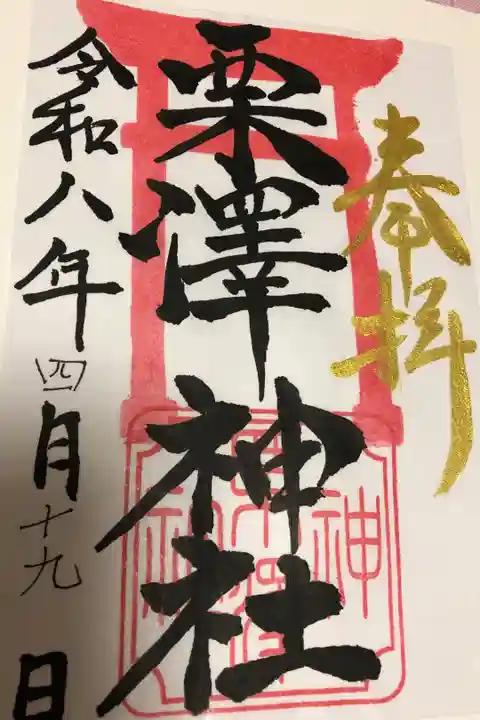 奉拝
栗澤神社
令和八年四月十九日